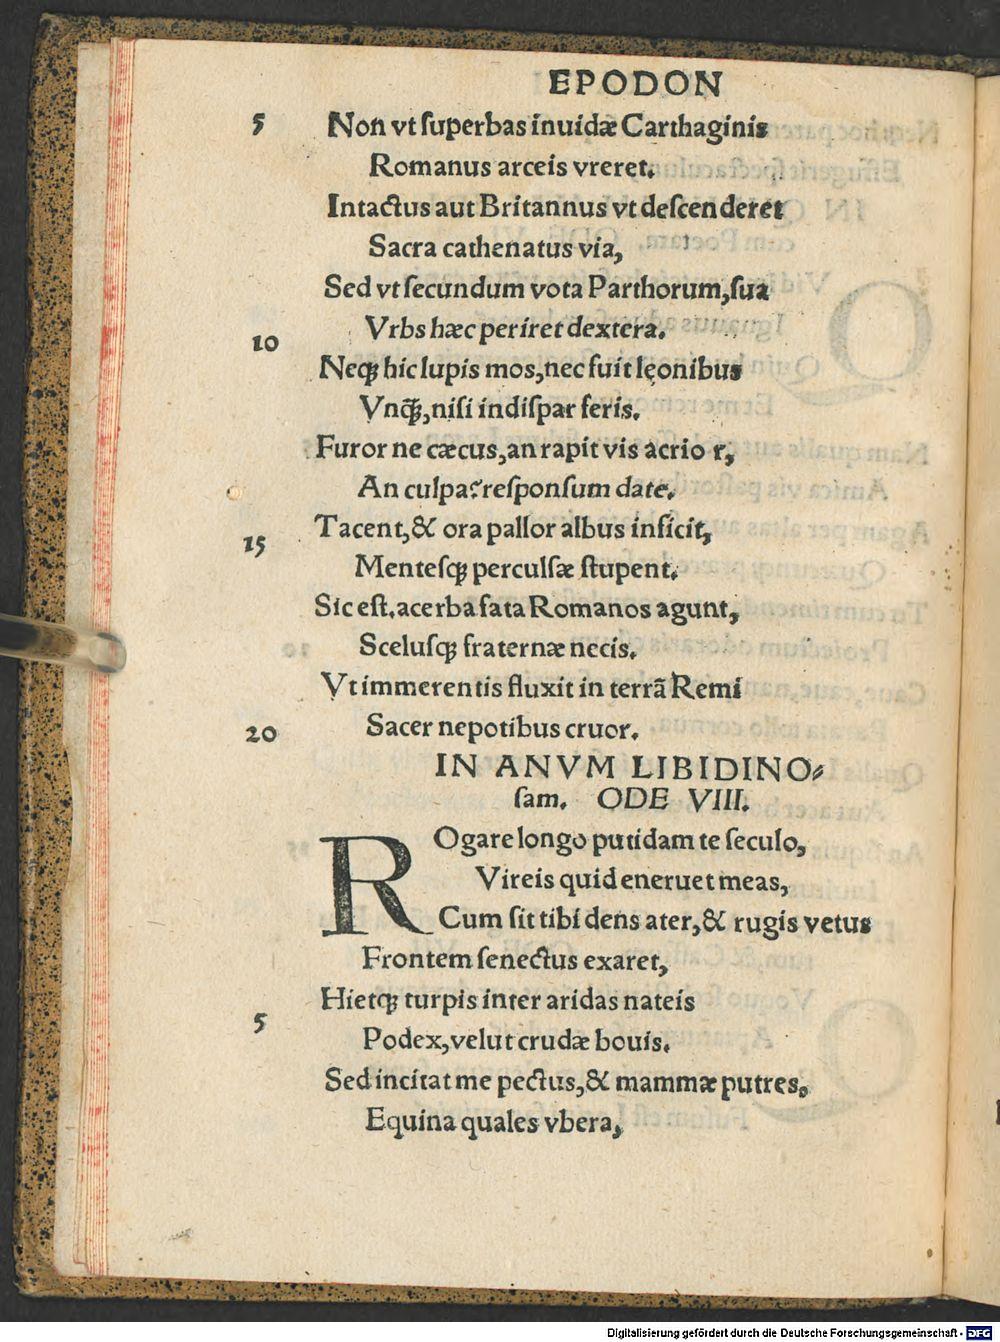 EPODON
5 Non vt ſuperbas inuidæ Carthaginis
Romanus arceis vreret.
Intactus aut Britannus vt deſcenderet
Sacra cathenatus via,
Sed vt ſecundum vota Parthorum, ſua
10 Vrbs hæc periret dextera.
Neqꝫ hic lupis mos, nec fuit lęonibus
Vnꝙ̃, niſi indiſpar feris.
Furor ne cæcus, an rapit vis acrio r,
An culpa? reſponſum date.
15 Tacent, & ora pallor albus inficit,
Menteſqꝫ perculſæ ſtupent.
Sic eſt. acerba fata Romanos agunt,
Sceluſqꝫ fraternæ necis.
Vt immerentis fluxit in terrã Remi
20 Sacer nepotibus cruor.
IN ANVM LIBIDINO⸗
ſam. ODE VIII.
ROgare longo putidam te ſeculo,
Vireis quid eneruet meas,
Cum ſit tibi dens ater, & rugis vetus
Frontem ſenectus exaret,
5 Hietqꝫ turpis inter aridas nateis
Podex, velut crudæ bouis.
Sed incitat me pectus, & mammæ putres,
Equina quales vbera,
Digitalisierung gefördert durch die Deutsche Forschungsgemeinschaft - DFG